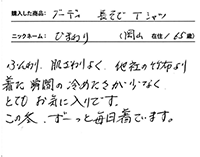 購入した商品: ブーデ 長そで Tシャツ
ニックネーム: ひまわり (岡山 在住 / 65歳)
ふんわり、肌ざわりよく、他社の竹布より
着た瞬間の冷めたさが少なく
とてもお気に入りです。
この冬、ずーっと毎日着ています。